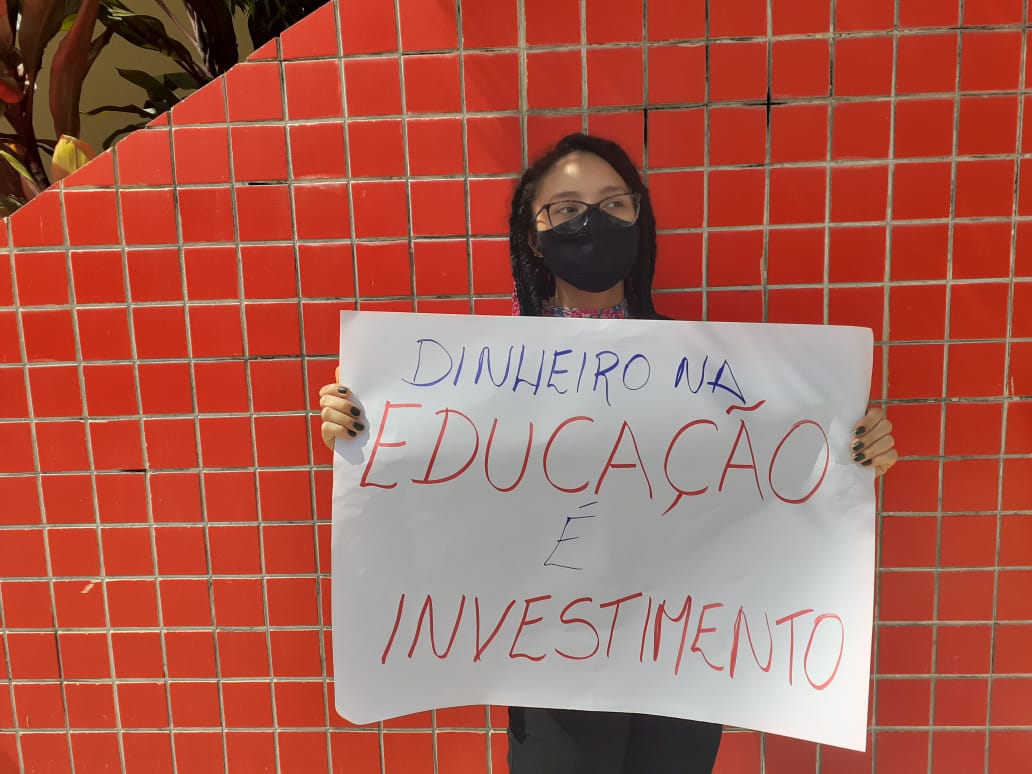 DINHEIRO NA
EDUCAÇÃO
É
INVESTIMENTO